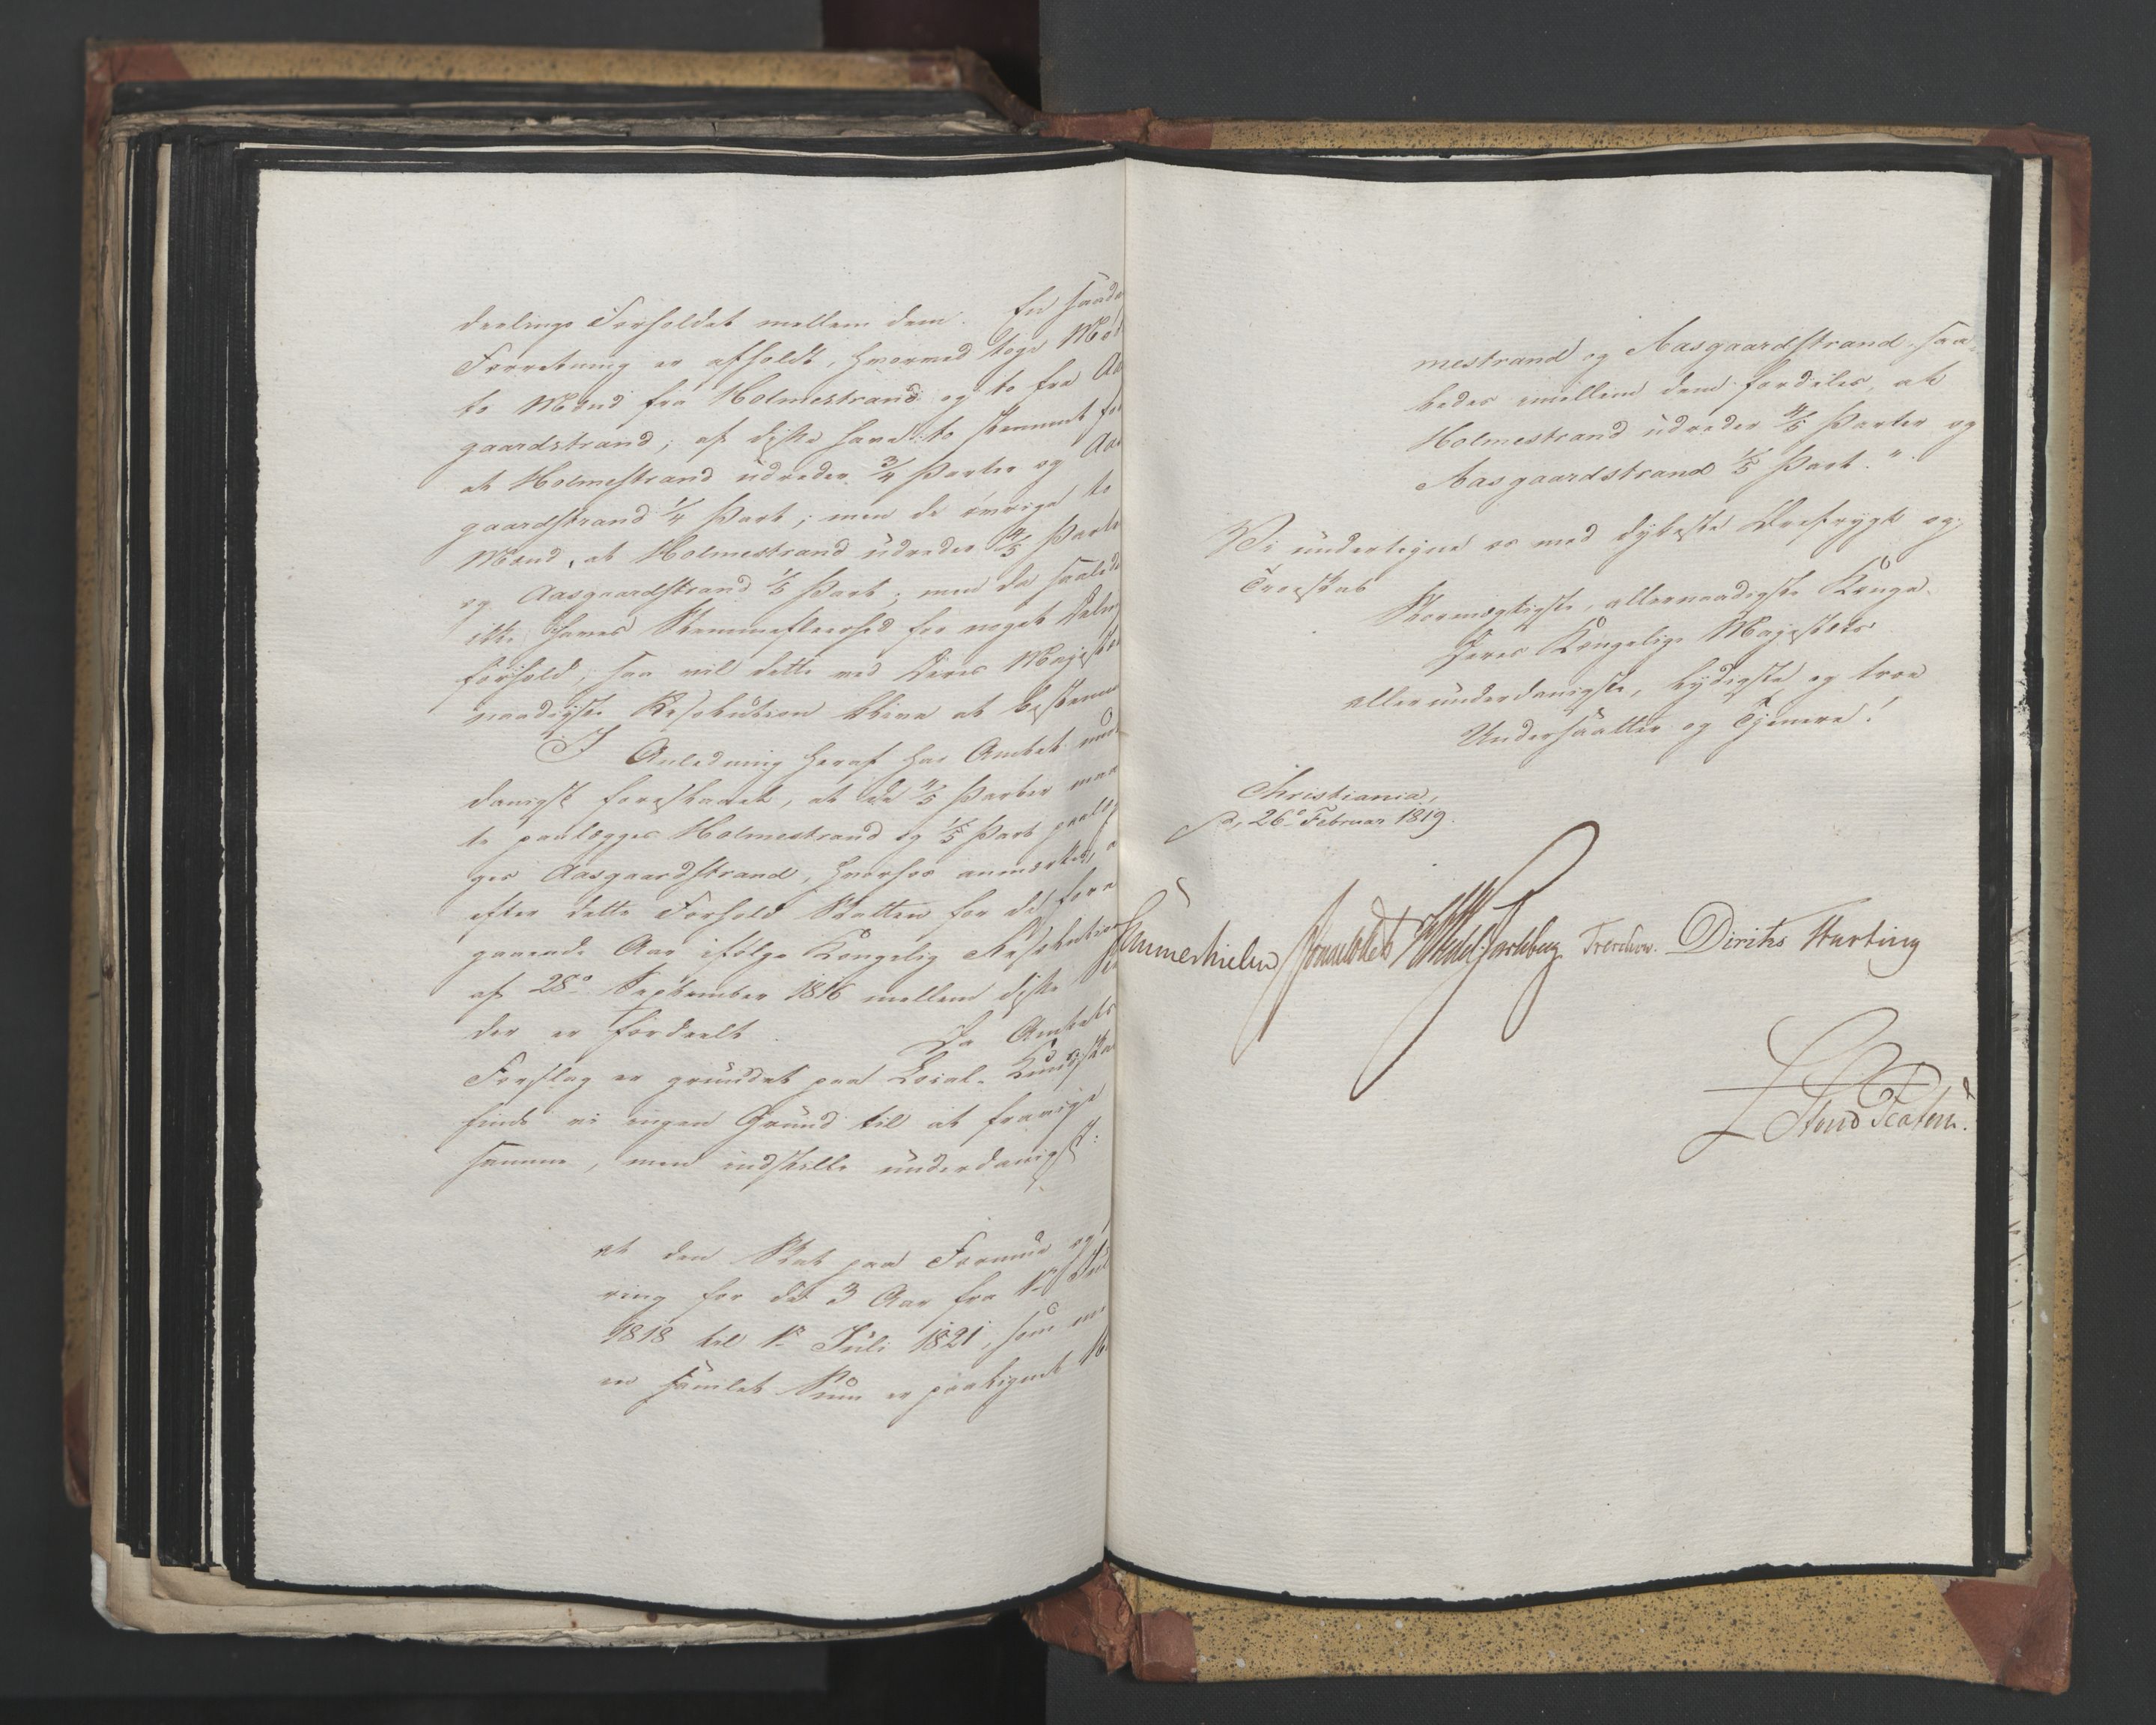 deelings Forholdet mellem dem. En saada
Forretning er afholdt, hvorved toge Mød
to Mænd fra Holmestrand og to fra Aa
gaardstrand; af disse have to stemmet for
at Holmestrand udreder 3/4 Parter og Aas
gaardstrand 1/4 Part; men de øvrige to
Mænd, at Holmestrand udreder 4/5 Parte
og Aasgaardstrand 1/5 Part; men da saalede
ikke haves Stemmefleerhed for noget Delings
forhold, saa vil dette ved Deres Majestæts
naadigste Resolution blive at bestemme
I Anledning heraf har Amtet under
danigst foreslaaet, at de 4/5 Parter maa
te paalægges Holmestrand og 1/5 Part paalæg
ges Aasgaardstrand, hvorhos anmærkes, a
efter dette Forhold Skatten for det fore
gaaende Aar ifølge Kongelig Resolution
af 28de September 1816 mellem disse Stæ
der er fordeelt. Da Amtets
Forslag er grundet paa Local-Kundskab
finde vi ingen Grund til at fravige
samme, men indstille underdanigst:
at den Skat paa Formue og
ring for de 3 Aar fra 1ste Juli
1818 til 1ste Juli 1821, som
en samlet Sum er paalignet
mestrand og Aasgaardstrand, saa-
ledes imellem dem fordeles, at
Holmestrand udreder 4/5 Parter og
Aasgaardstrand 1/5 Part."
Vi undertegne os med dybeste Ærefrygt og
Troeskab
Stormægtigste, allernaadigste Konge
Deres Kongelige Majestæts
allerunderdanigste, lydigste og troe
Undersaatter og Tjenere!
Christiania,
d. 26de Februar 1819.
Sommerhielm Wedel Jarlsberg Treschow. Diriks Hartung